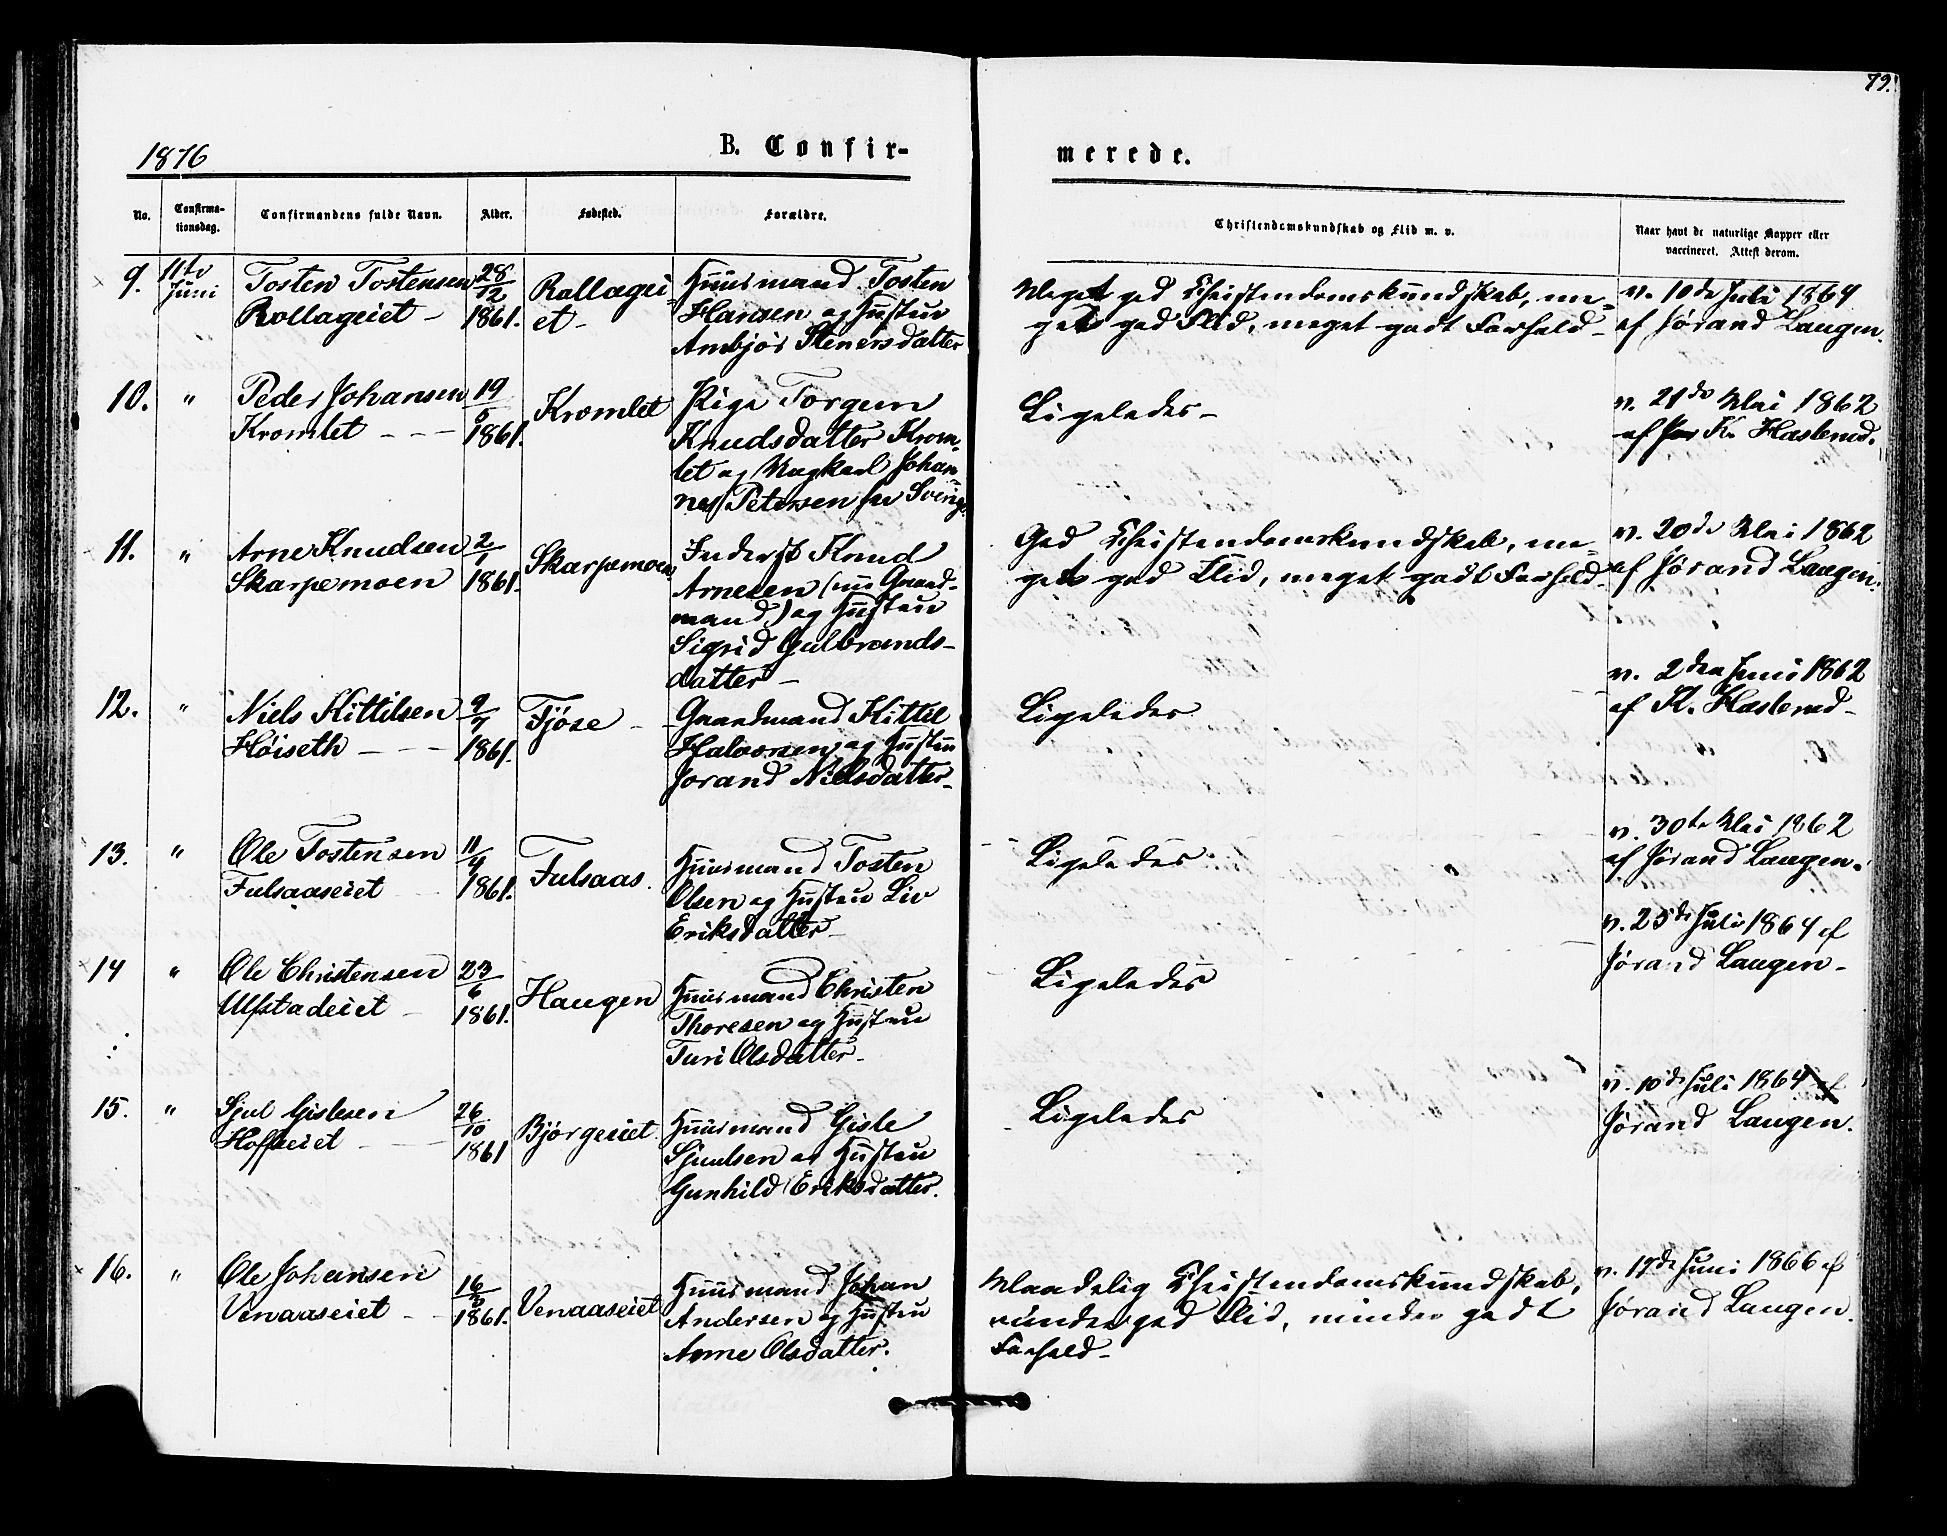 79.
1876
B. Confir-
merede.
No.
Confirma-
tionsdag.
Confirmandens fulde Navn.
Alder.
Fødested.
Forældre.
Christendomskundskab og Flid m. v.
Naar havt de naturlige Kopper eller
vaccineret. Attest derom.
9. 11te Juni
Tosten Tostensen
Rollageiet –
28/12 1861.
Rollagei-
et –
Huusmand Tosten
Hansen og Hustru
Ambjør Stenersdatter
Meget god Christendomskundskab, me-
get god Flid, meget godt Forhold –
v. 10de Juli 1864
af Jørand Laugen.
10. "
Peder Johansen
Kromlet – – –
19/5 1861.
Kromlet
Pige Torgun
Knudsdatter Krom-
let og Ungkarl Johan-
nes Petersen fra Sverig.
Ligeledes –
v. 21de Mai 1862
af K. Haslerud.
11. "
Arne Knudsen
Skarpemoen
2/7 1861.
Skarpemoen
Inderst Knud
Arnesen (nu Gaard-
mand) og Hustru
Sigrid Gulbrands-
datter –
God Christendomskundskab, me-
get god Flid, meget godt Forhold –
v. 20de Mai 1862
af Jørand Laugen.
12. "
Niels Kittilsen
Høiseth – – –
9/7 1861.
Tjøse –
Gaardmand Kittil
Halvorsen og Hustru
Jørand Nielsdatter –
Ligeledes
v. 2den Juni 1862
af K. Haslerud –
13. "
Ole Tostensen
Fulsaaseiet
11/4 1861.
Fulsaas.
Huusmand Tosten
Olsen og Hustru Liv
Eriksdatter –
Ligeledes
v. 30te Mai 1862
af Jørand Laugen.
14 "
Ole Christensen
Ulfstadeiet –
23/6 1861.
Haugen
Huusmand Christen
Thoresen og Hustru
Turi Olsdatter –
Ligeledes
v. 25de Juli 1864 af
Jørand Laugen –
15. "
Sjul Gislesen
Hoffseiet –
26/10 1861
Bjørgeeiet.
Huusmand Gisle
Sjuulsen og Hustru
Gunhild Eriksdatter.
Ligeledes
v. 10de Juli 1864 af
Jørand Laugen.
16. "
Ole Johansen
Venaaseiet –
16/3 1861.
Venaaseiet
Huusmand Johan
Andersen og Hustru
Anne Olsdatter.
Maadelig Christendomskundskab,
under god Flid, mindre godt
Forhold –
v. 17de Juni 1866 af
Jørand Laugen.